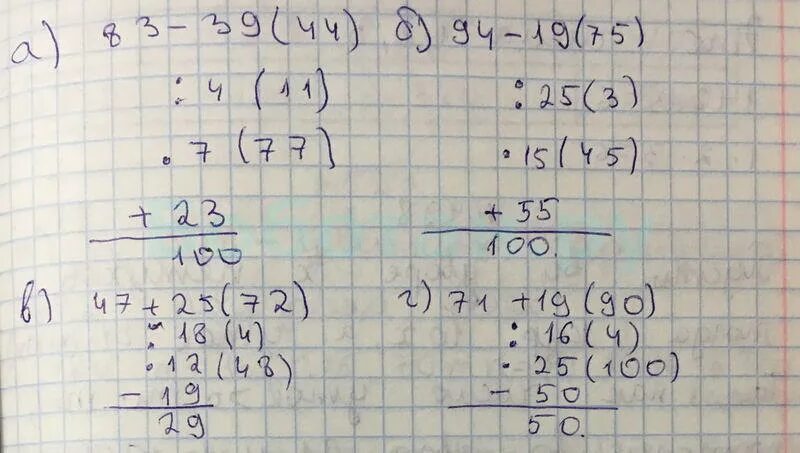 а) 83-39(44) б) 94-19(75)
:4 (11) :25(3)
.7(77) .15(45)
+23 +55
100 100.
в) 47+25(72) г) 71+19(90)
:18(4) :16(4)
.12(48) .25(100)
-19 -50
29 50.